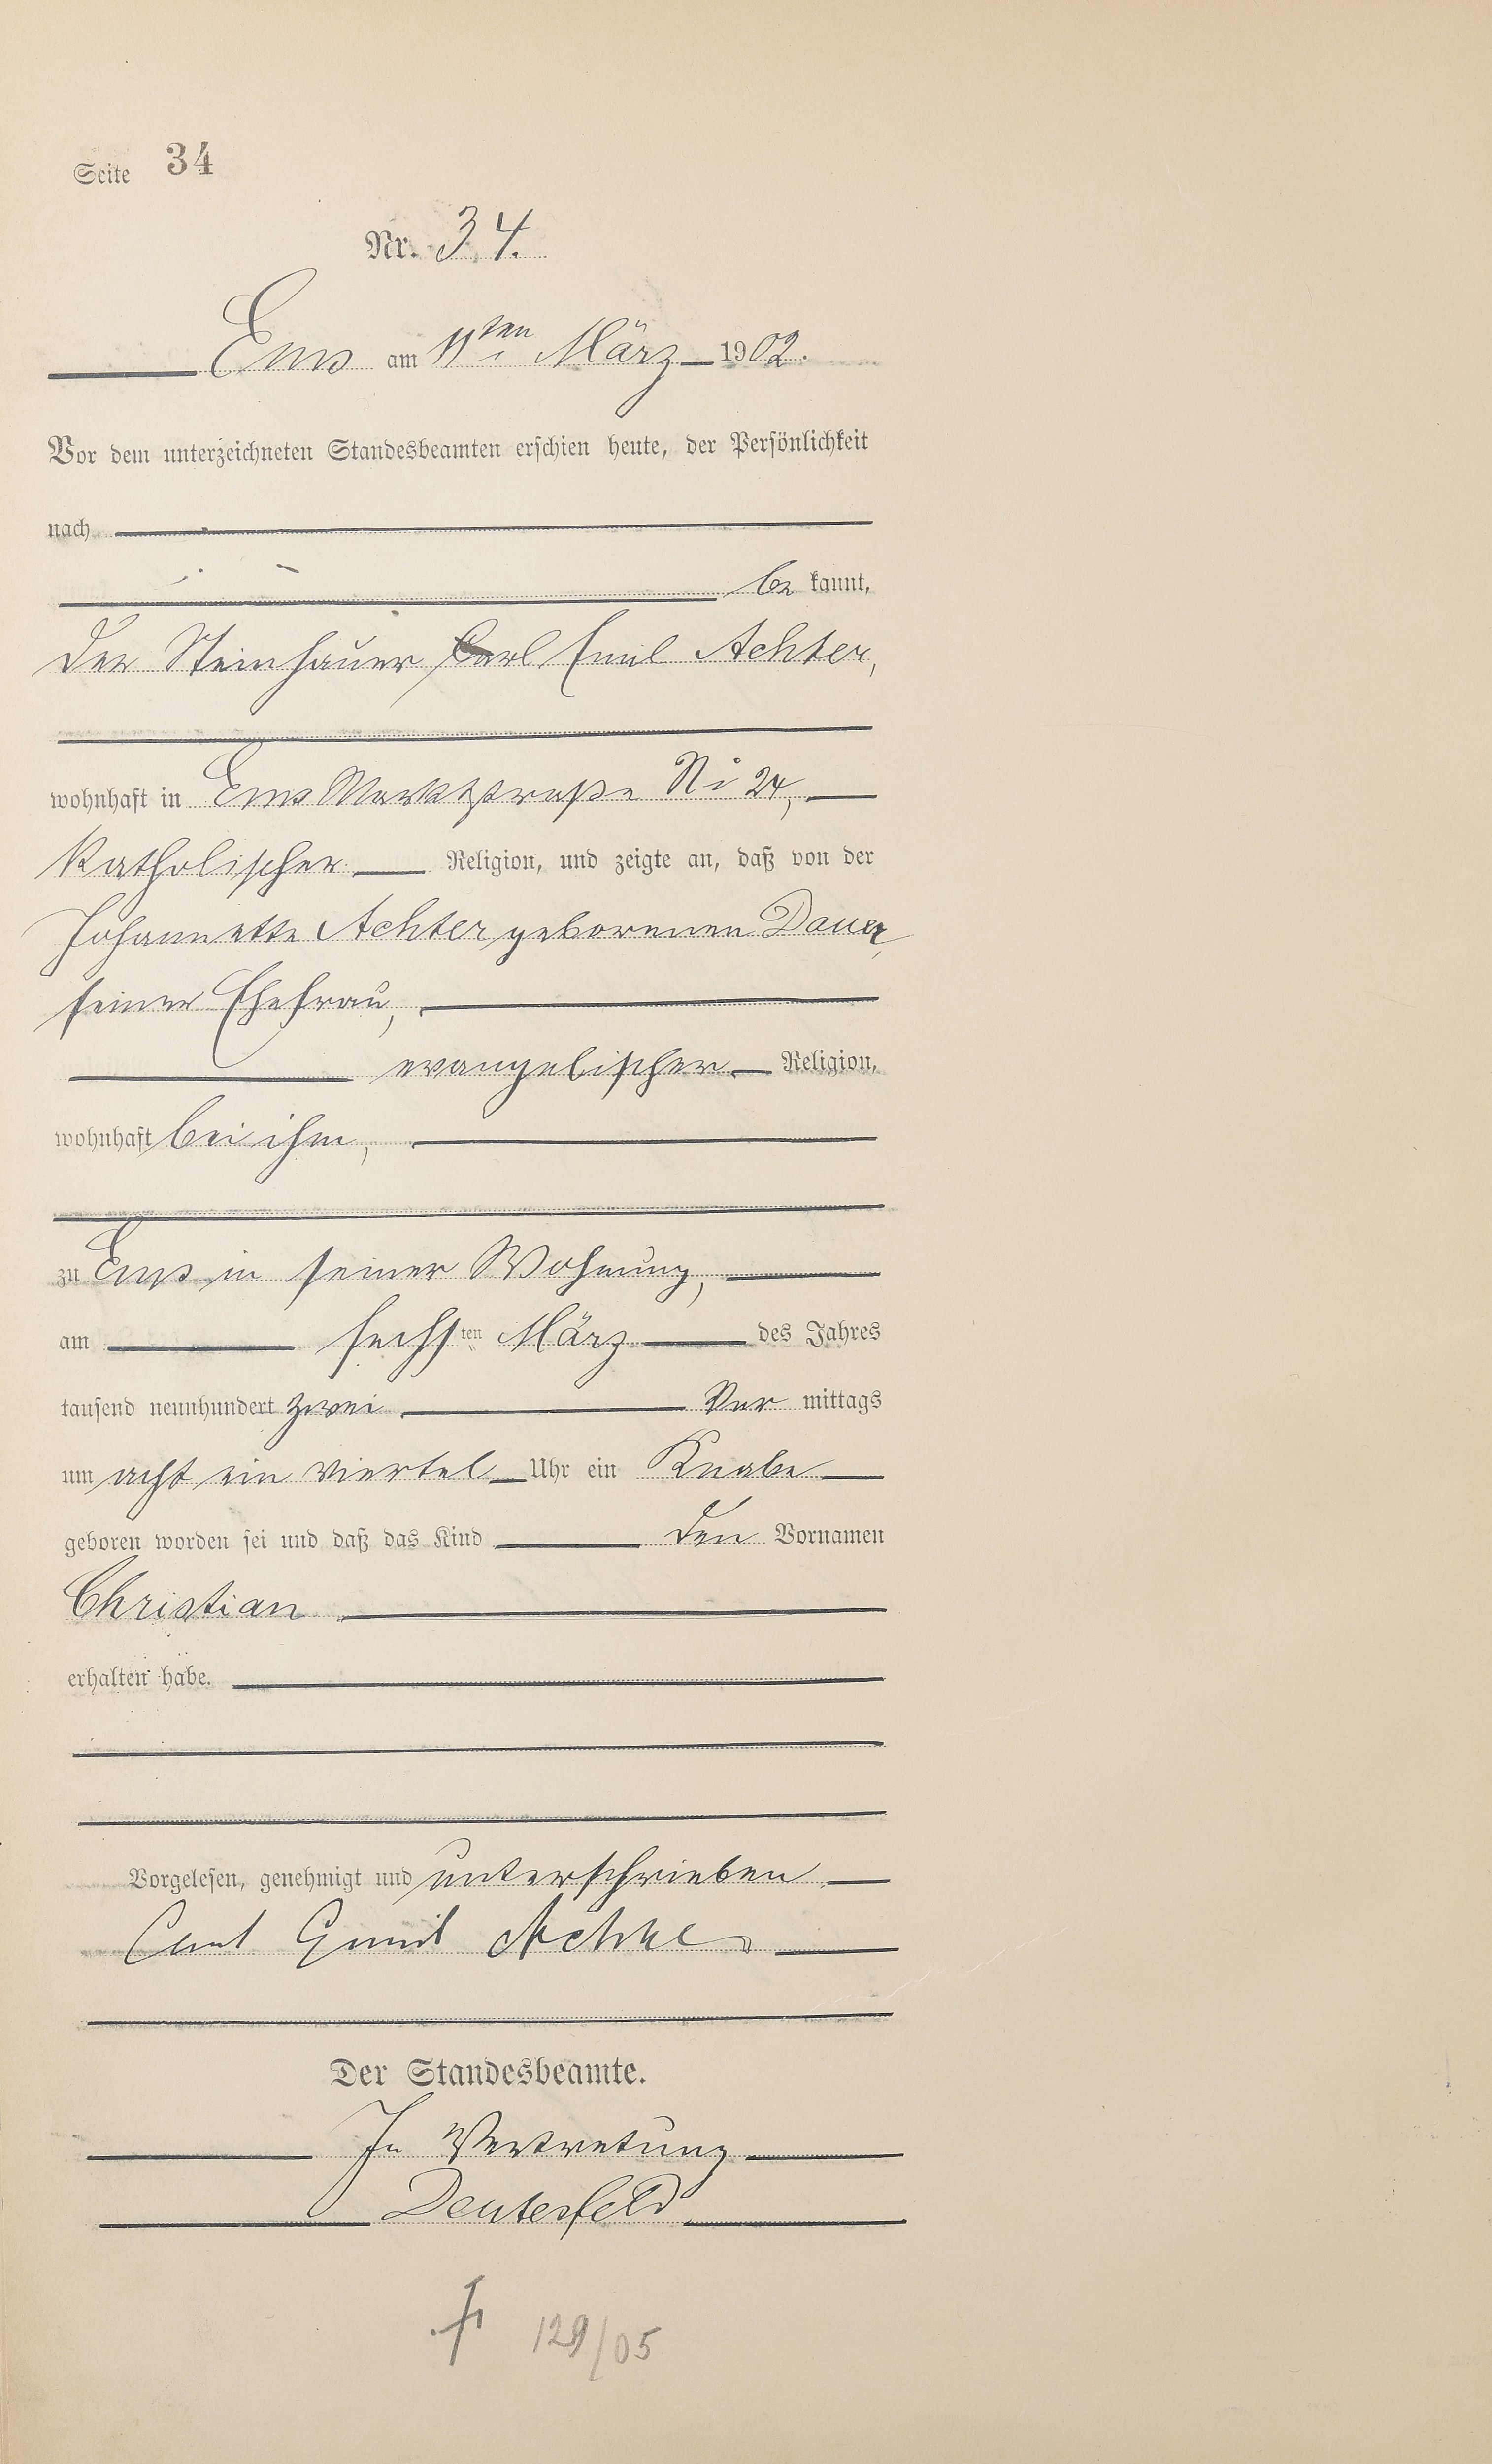 Seite 34
Nr. 34.
Ems am 11ten März 1902.
Vor dem unterzeichneten Standesbeamten erschien heute, der Persönlichkeit
nach
be kannt,
der Steinhauer Carl Emil Achter,
wohnhaft in Ems Marktstraße No 24,
katholischer Religion, und zeigte an, daß von der
Johannette Achter geborenen Dauer,
seiner Ehefrau,
evangelischer Religion,
wohnhaft bei ihm,
zu Ems in seiner Wohnung,
am sechsten März des Jahres
tausend neunhundert zwei Vor mittags
um acht ein viertel Uhr ein Knabe
geboren worden sei und daß das Kind den Vornamen
Christian
erhalten habe.
Vorgelesen, genehmigt und unterschrieben
Carl Emil Achter
Der Standesbeamte.
In Vertretung
Deutesfeld
† 129/05